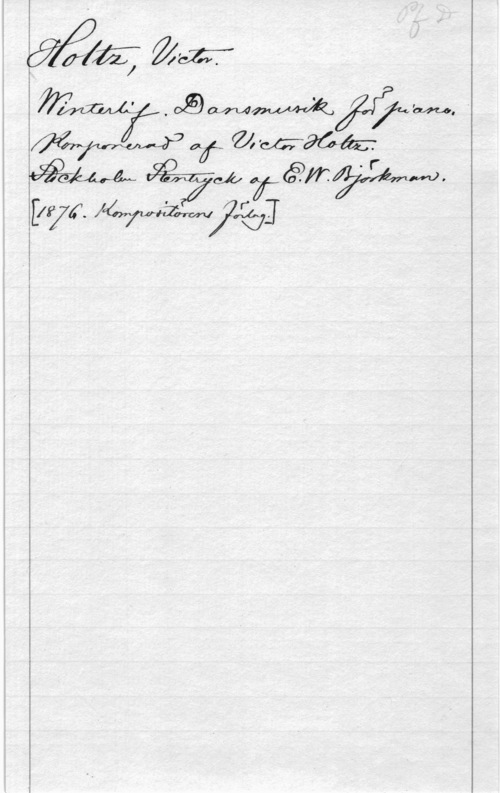 Pf D
Holtz, Victor.
Winterlif. Dansmusik för piano.
Komponerad af Victor Holtz.
Stockholm Stentryck af E.W. Björkman.
[1876. Kompositörens förlag.]